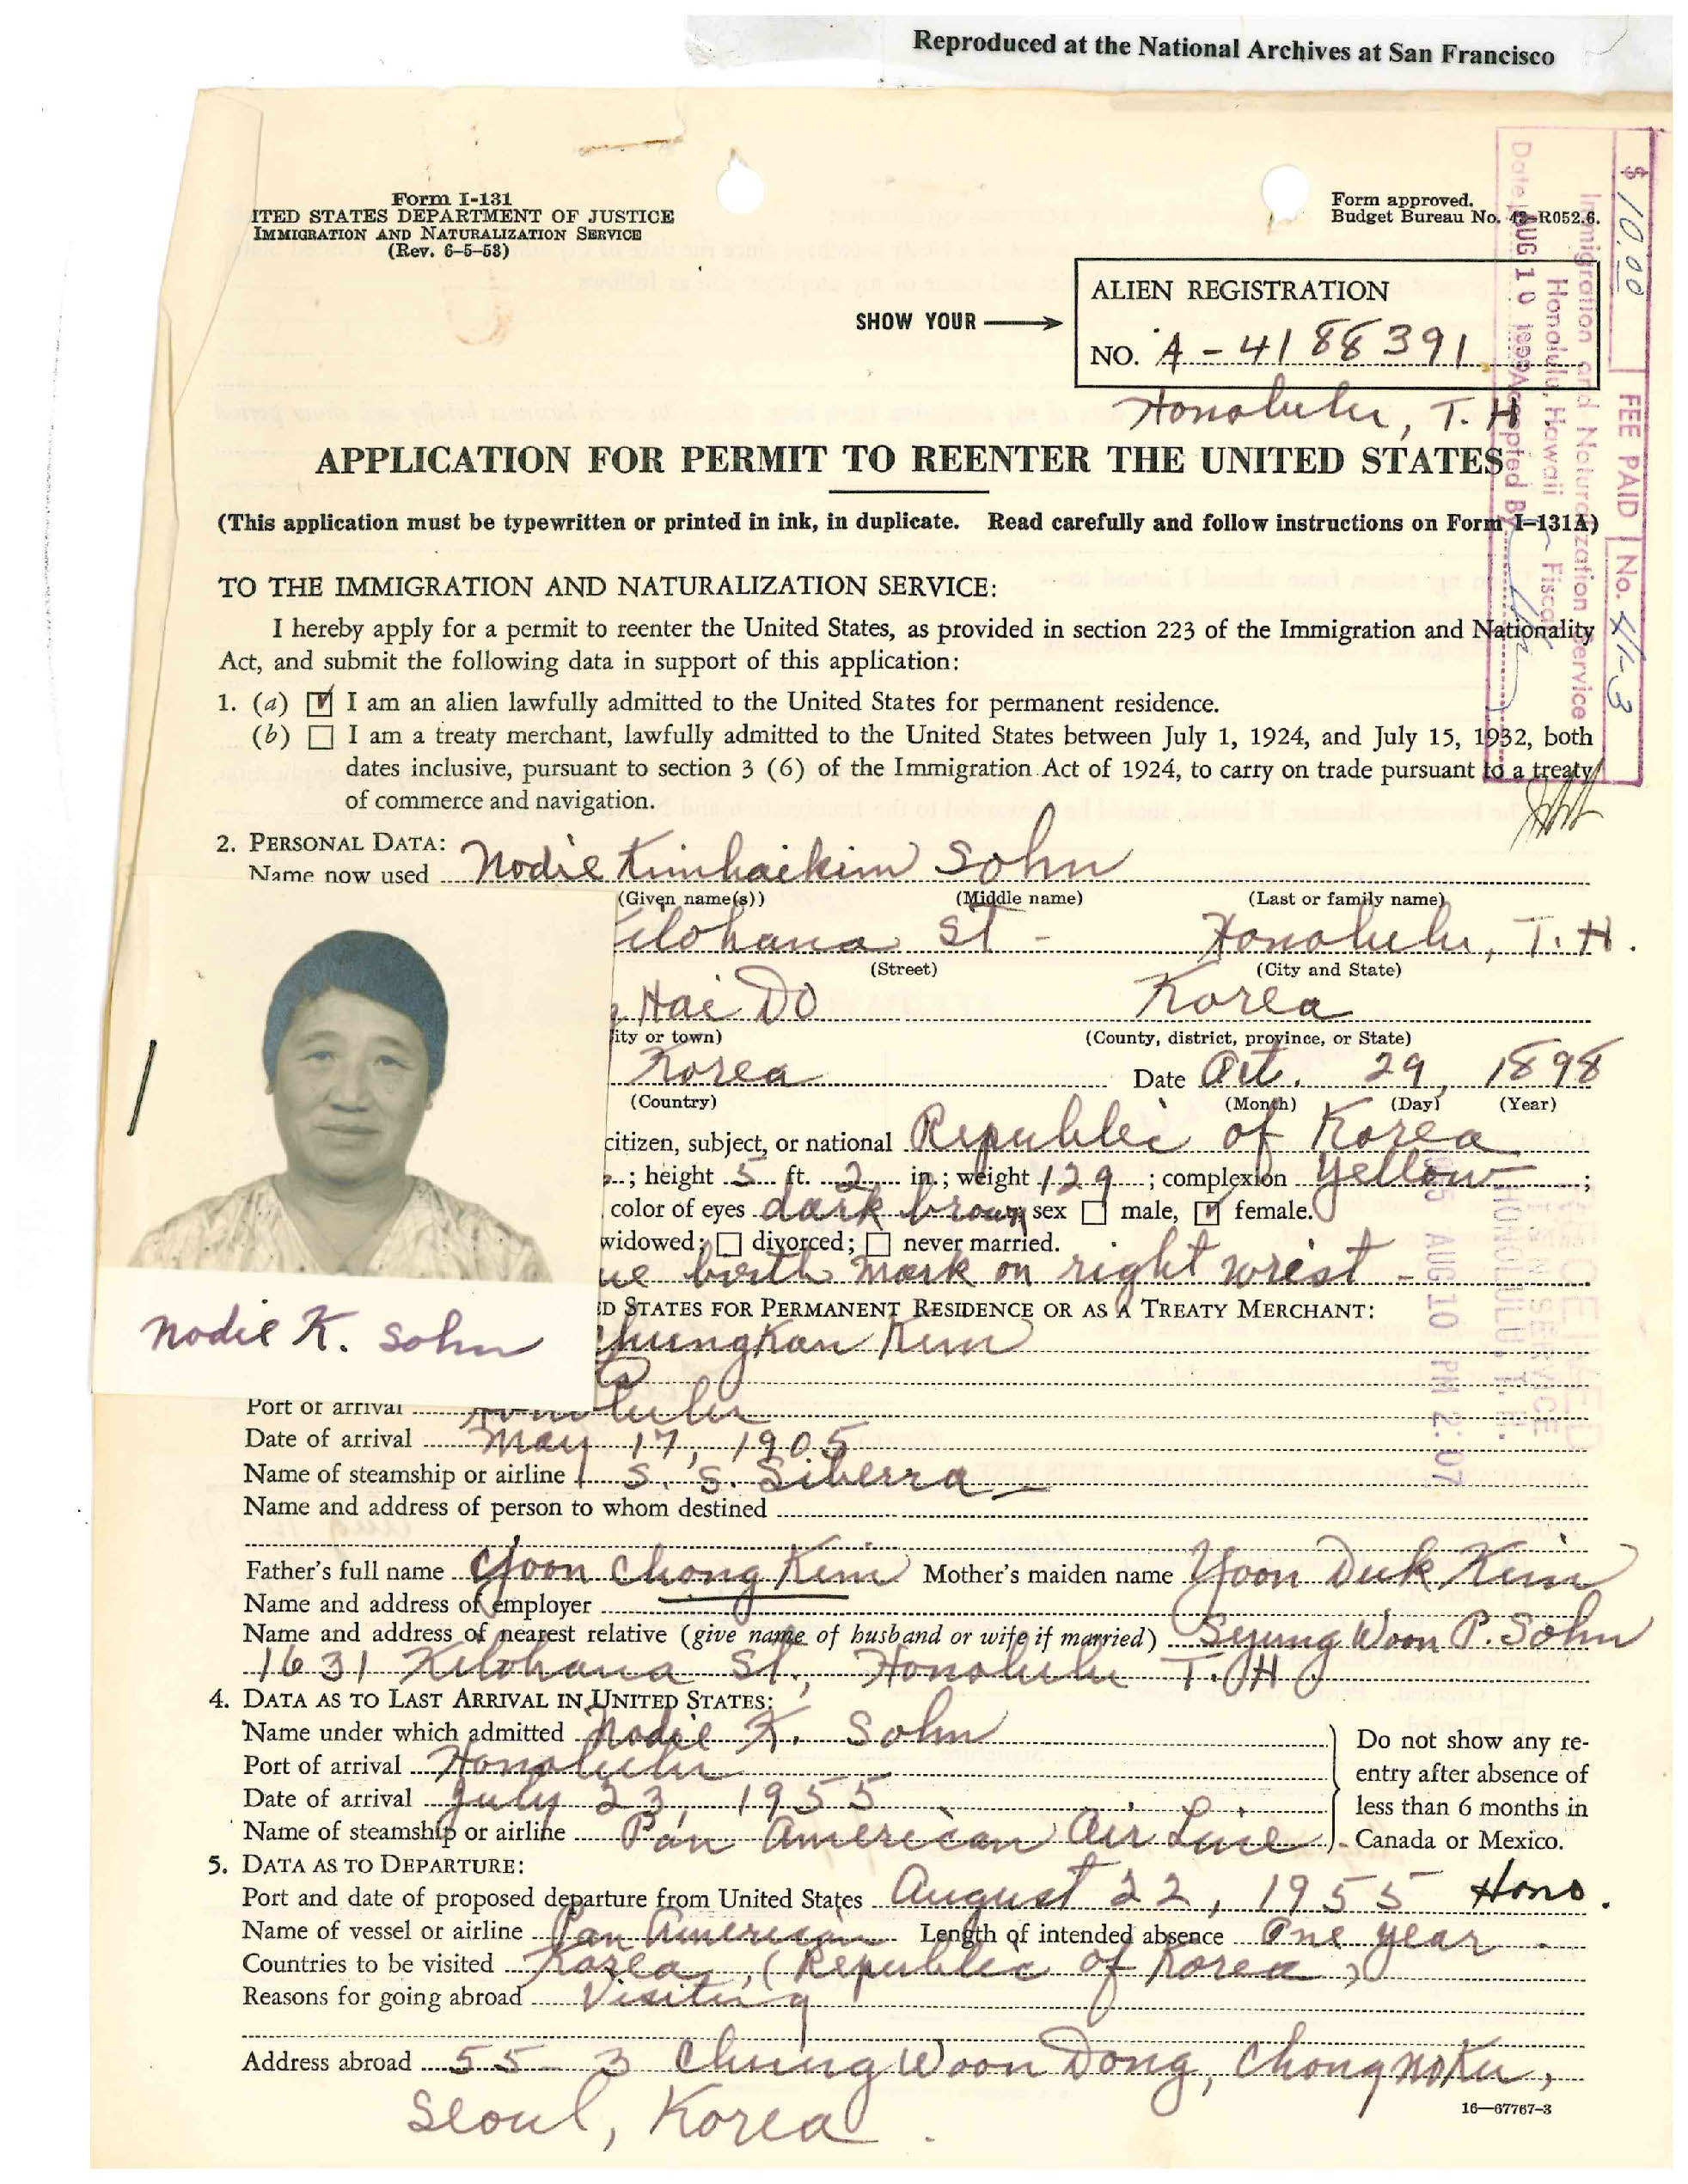 Reproduced at the National Archives at San Francisco
Form I-131
ITED STATES DEPARTMENT OF JUSTICE
IMMIGRATION AND NATURALIZATION SERVICE
(Rev. 6-5-53)
Form approved.
Budget Bureau No. 43-R052.6.
SHOW YOUR
ALIEN REGISTRATION
NO. A-4188391
Honolulu, T. H
$10.00 FEE PAID No. 41-3
Immigration and Naturalization Service
Honolulu, Hawaii - Fiscal
Date AUG 10 Accepted By
APPLICATION FOR PERMIT TO REENTER THE UNITED STATES
(This application must be typewritten or printed in ink, in duplicate. Read carefully and follow instructions on Form I-131A)
TO THE IMMIGRATION AND NATURALIZATION SERVICE:
I hereby apply for a permit to reenter the United States, as provided in section 223 of the Immigration and Nationality
Act, and submit the following data in support of this application:
1. (a) I am an alien lawfully admitted to the United States for permanent residence.
(b) I am a treaty merchant, lawfully admitted to the United States between July 1, 1924, and July 15, 1932, both
dates inclusive, pursuant to section 3 (6) of the Immigration Act of 1924, to carry on trade pursuant to a treaty
of commerce and navigation.
2. PERSONAL DATA:
Name now used Nodie Kimhaikim Sohn
(Given name(s)) (Middle name) (Last or family name)
ilohana St - Honolulu, T. H.
(Street) (City and State)
Hai Do Korea
ity or town) (County, district, province, or State)
Korea Date Oct. 29, 1898
(Country) (Month) (Day) (Year)
citizen, subject, or national Republic of Korea
; height 5 ft. 2 in.; weight 129; complexion yellow;
color of eyes dark brown sex male, female.
widowed; divorced; never married.
ue birth mark on right wrist -
D STATES FOR PERMANENT RESIDENCE OR AS A TREATY MERCHANT:
Nodie K. Sohn
hungkan Kim
Port of arrival Honolulu
Date of arrival May 17, 1905
Name of steamship or airline S. S. Siberra
Name and address of person to whom destined
Father's full name Yoon Chong Kim Mother's maiden name Yoon Duk Kim
Name and address of employer
Name and address of nearest relative (give name of husband or wife if married) Syung Woon P. Sohn
1631 Kilohana St., Honolulu T. H
4. DATA AS TO LAST ARRIVAL IN UNITED STATES:
Name under which admitted Nodie K. Sohn
Port of arrival Honolulu
Date of arrival July 23, 1955
Name of steamship or airline Pan American Air Line
Do not show any re-
entry after absence of
less than 6 months in
Canada or Mexico.
5. DATA AS TO DEPARTURE:
Port and date of proposed departure from United States August 22, 1955 Hono.
Name of vessel or airline Pan American Length of intended absence One year.
Countries to be visited Korea, (Republic of Korea)
Reasons for going abroad Visiting
Address abroad 55-3 Chung Woon Dong, Chongno Ku,
Seoul, Korea.
16—67767-3
RECEIVED
HONOLULU, T. H.
AUG 10 PM 2:07